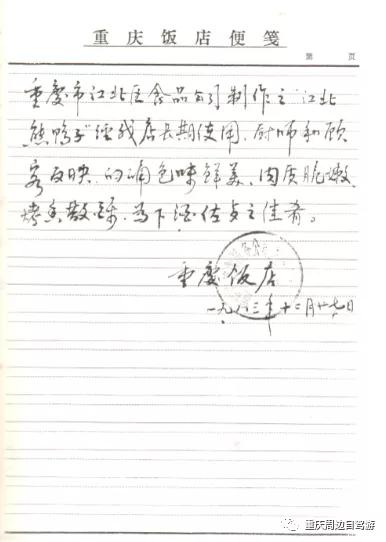 重庆饭店便笺
第 页
重庆市江北区食品公司制作之"江北
熊鸭子"经我店长期使用,厨师和顾
客反映,的确色味鲜美,肉质脆嫩
烤焦散,为下酒佐之佳肴。
重庆饭店
一九八三年十二月廿七日
重庆周边自驾游